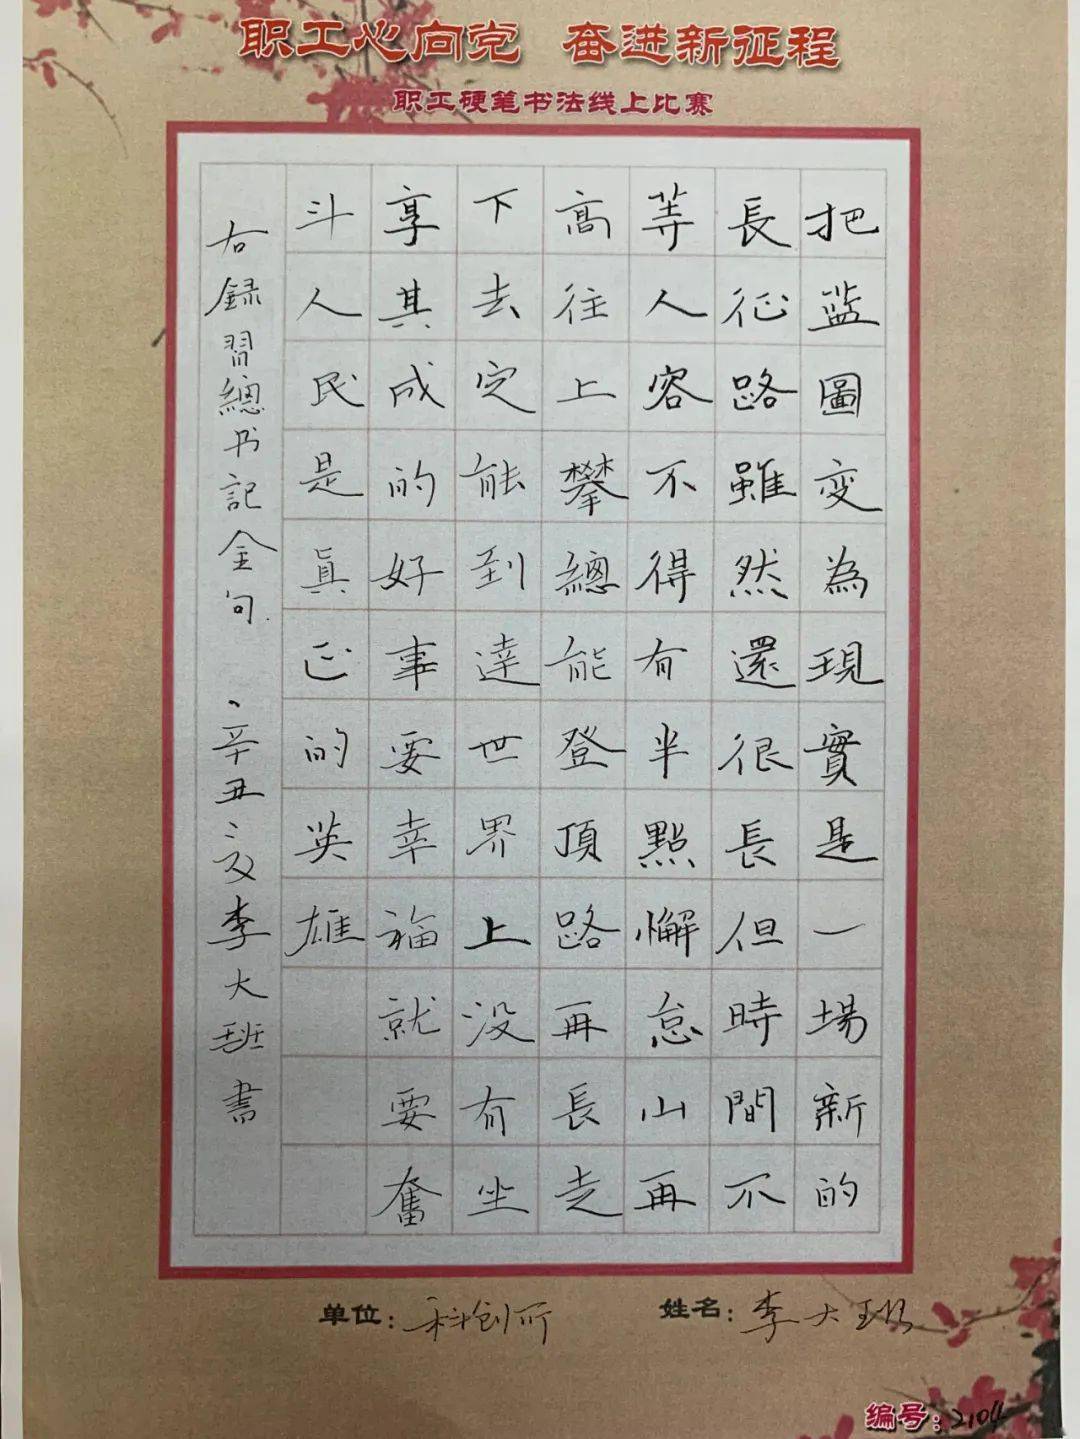 职工心向党 奋进新征程
职工硬笔书法线上比赛
把监圖变為現實是一場新的
長征路雖然還很長但時間不
等人容不得有半點懈怠山再
高往上攀總能登頂路再長走
下去定能到達世界上没有坐
享其成的好事要幸福就要奮
斗人民是真正的英雄
右録習總书記金句
辛丑之夏李大班書
单位：科创所
姓名：李大班
编号：2104